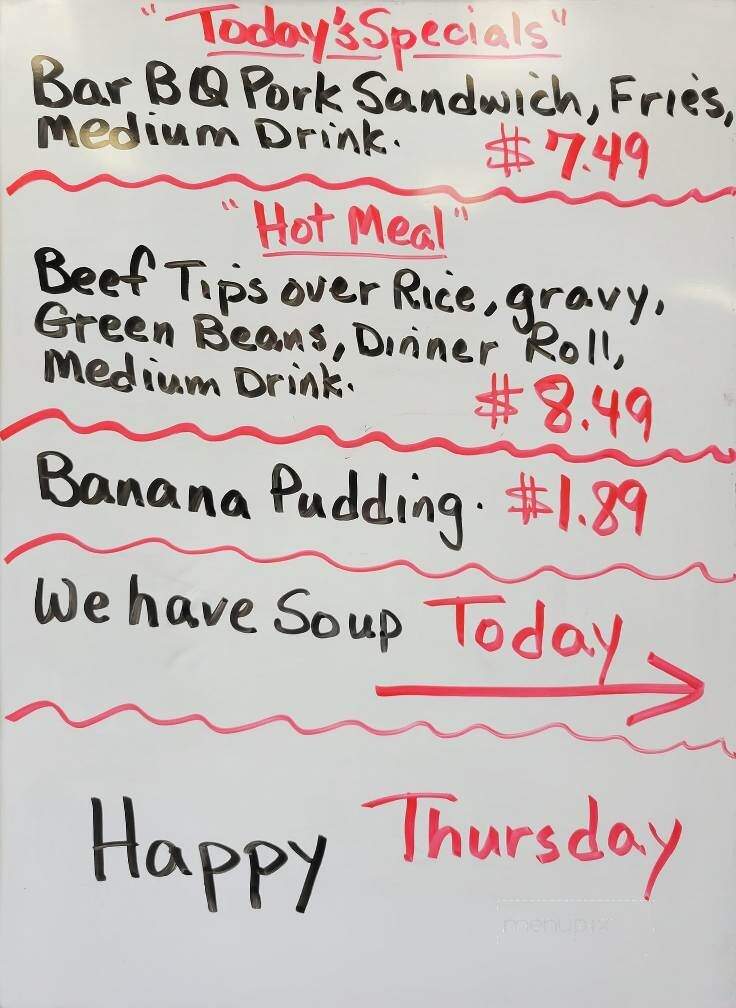 "Today's Specials"
Bar BQ Pork Sandwich, Fries,
Medium Drink. $7.49
"Hot Meal"
Beef Tips over Rice, gravy,
Green Beans, Dinner Roll,
Medium Drink. $8.49
Banana Pudding. $1.89
We have Soup Today
Happy Thursday
menupix